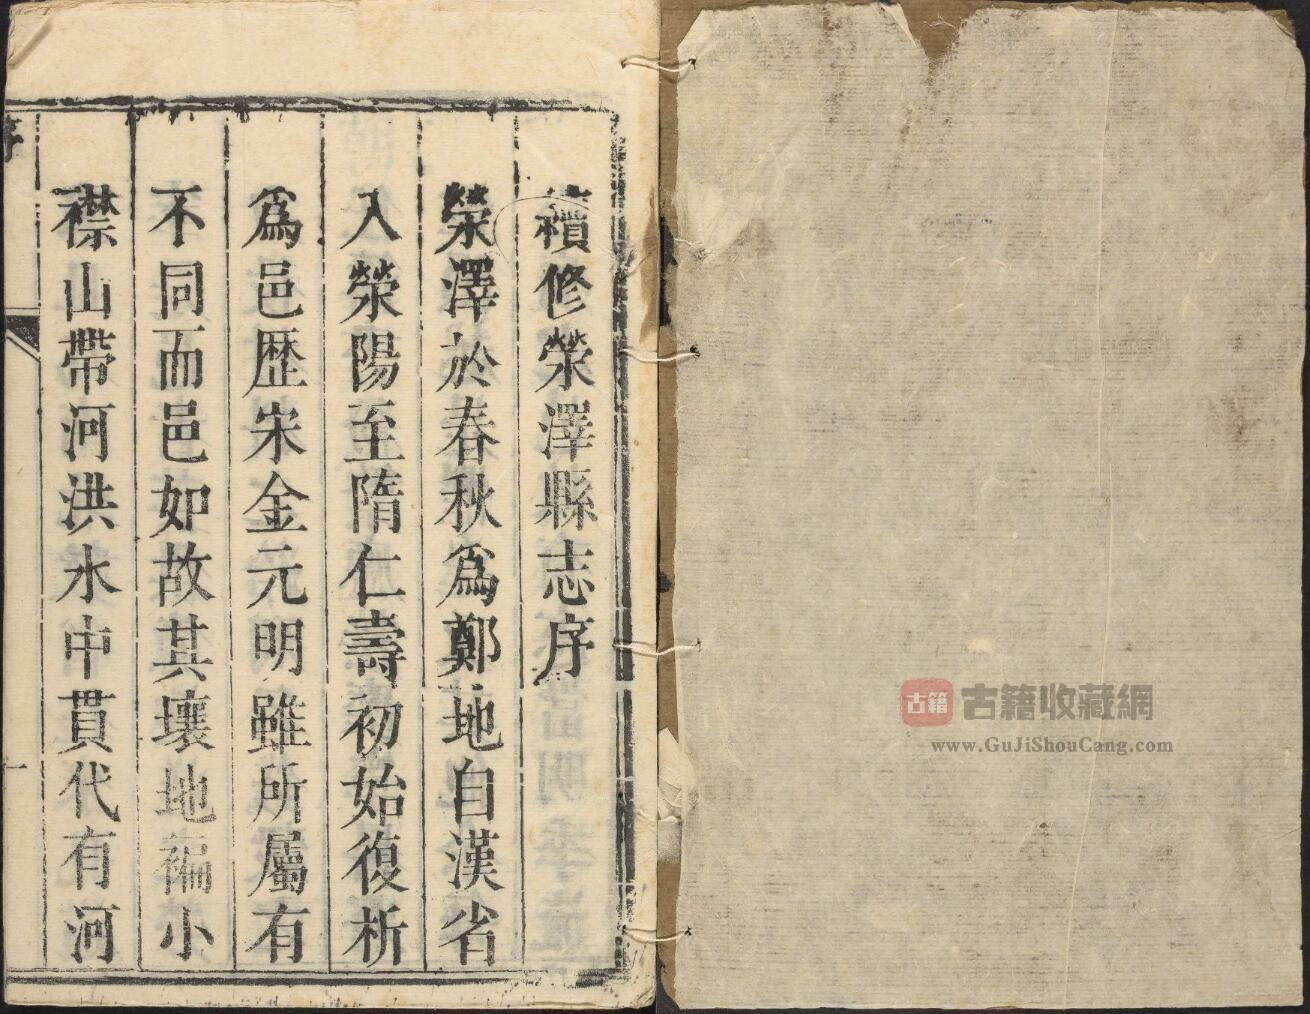 續修滎澤縣志序
滎澤於春秋爲鄭地自漢省
入滎陽至隋仁壽初始復析
爲邑歷宋金元明雖所屬有
不同而邑如故其壤地褊小
襟山帶河洪水中貫代有河
序
一
古籍
古籍收藏網
www.GuJiShouCang.com